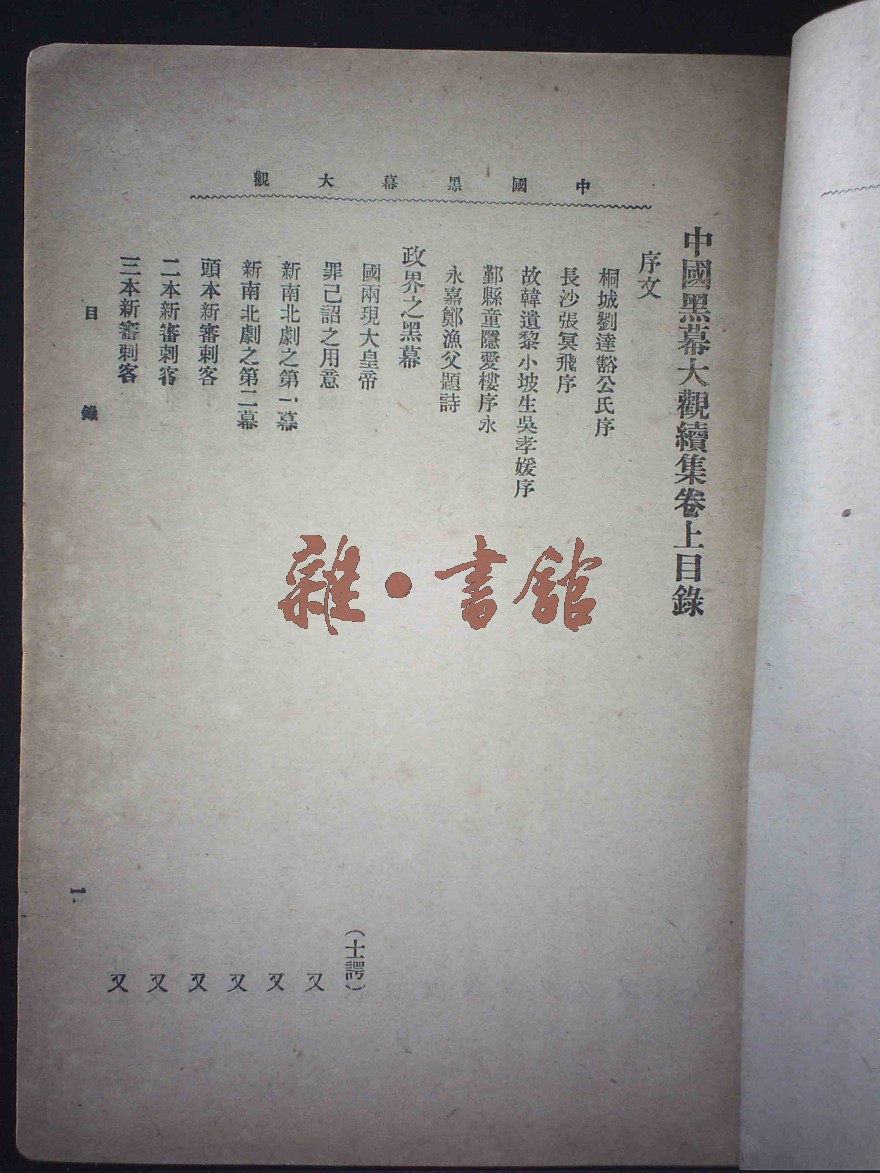 中國黑幕大觀
中國黑幕大觀續集卷上目錄
序文
桐城劉達豁公氏序
長沙張冥飛序
故韓遺黎小坡生吳孝媛序
鄞縣童隱愛樓序永
永嘉鄭漁父題詩
政界之黑幕
國兩現大皇帝 (士諤)
罪己詔之用意 又
新南北劇之第一幕 又
新南北劇之第二幕 又
頭本新審刺客 又
二本新審刺客 又
三本新審刺客 又
目錄 一
雜·書館